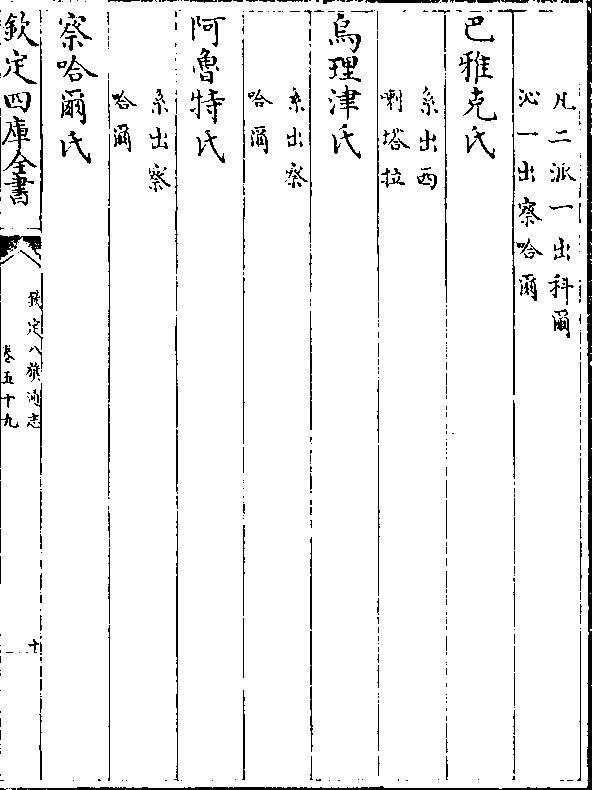 凡二派一出科爾
沁一出察哈爾
巴雅克氏
系出西
喇塔拉
烏理津氏
系出察
哈爾
阿魯特氏
系出察
哈爾
察哈爾氏
欽定四庫全書
欽定八旗通志
卷五十九
十